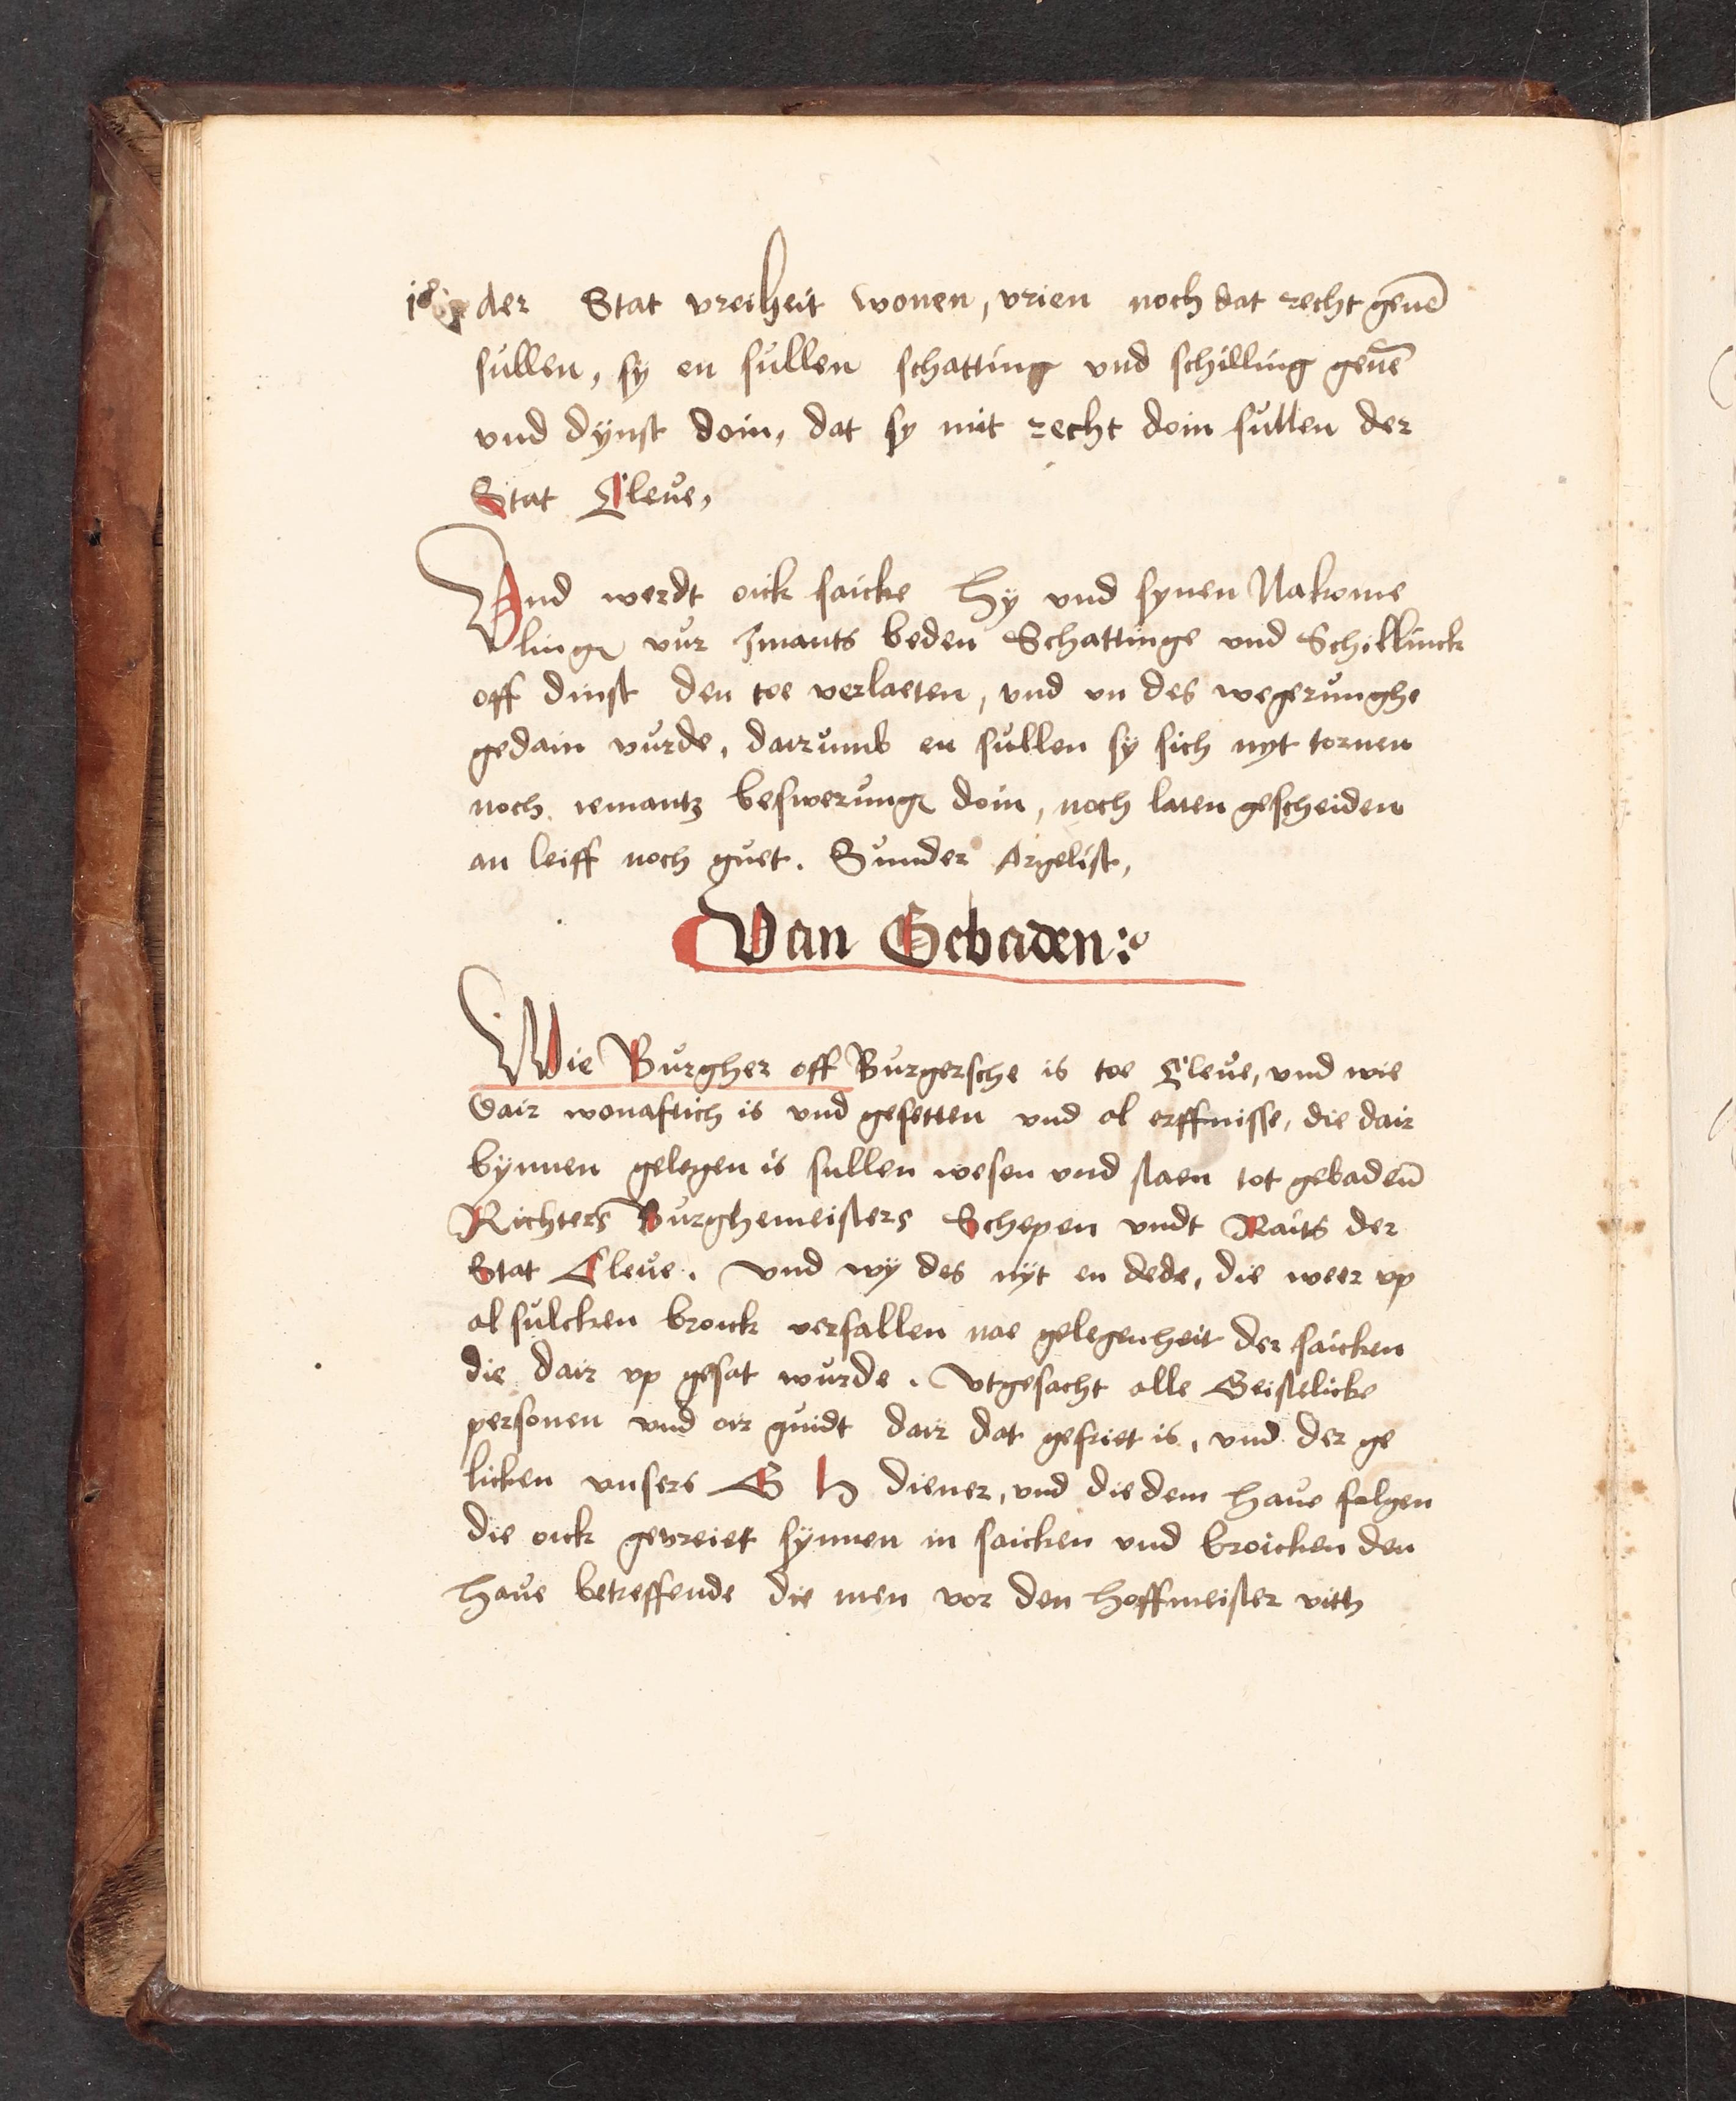 der Stat vreiheit wonen, vrien noch dat recht geuē
sullen, sy en sullen schatting vnd schilling geuē
vnd dÿnst doin, dat sy mit recht doin sullen der
Stat Cleue,
Vnd werdt oick saicke hÿ vnd synen Nakome
ling vur Imants beden Schattinge vnd Schillinck
off dinst den toe verlaeten, vnd vn des wegerunghe
gedain vurde, dairumb en sullen sÿ sich nyt tornen
noch iemantz beswerung doin, noch laten gescheiden
an leiff noch guet. Sunder Argelist,
Van Gebaden:
Wie Burgher off Burgersche is toe Cleue, vnd wie
dair wonaftich is vnd gesetten vnd al erffnisse, die dair
bÿnnen gelegen is sullen wesen vnd staen tot gebadenn̄
Richters Burghemeisters Schepen vndt Raits der
Stat Cleue. Vnd wÿ des nÿt en dede, die weer vp
al sulcken broick verfallen nae gelegenheit der saicken
die dair vp gesat wurde. Vtgesacht alle Geistelicke
personen vnd oir guidt dair dat gefriet is, vnd der ge
licken vnsers G H diener, vnd die dem haue folgen
die oick gevreiet sÿnnen in saicken vnd broicken den
haue betreffende die men vor den hoffmeister vith